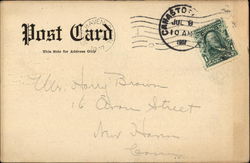 Post Card
This Side for Address Only
CANASTOTA
JUL 8
10 AM
1907
HAVEN
Mr. Harry Brown
16 Avon Street
New Haven
Conn.